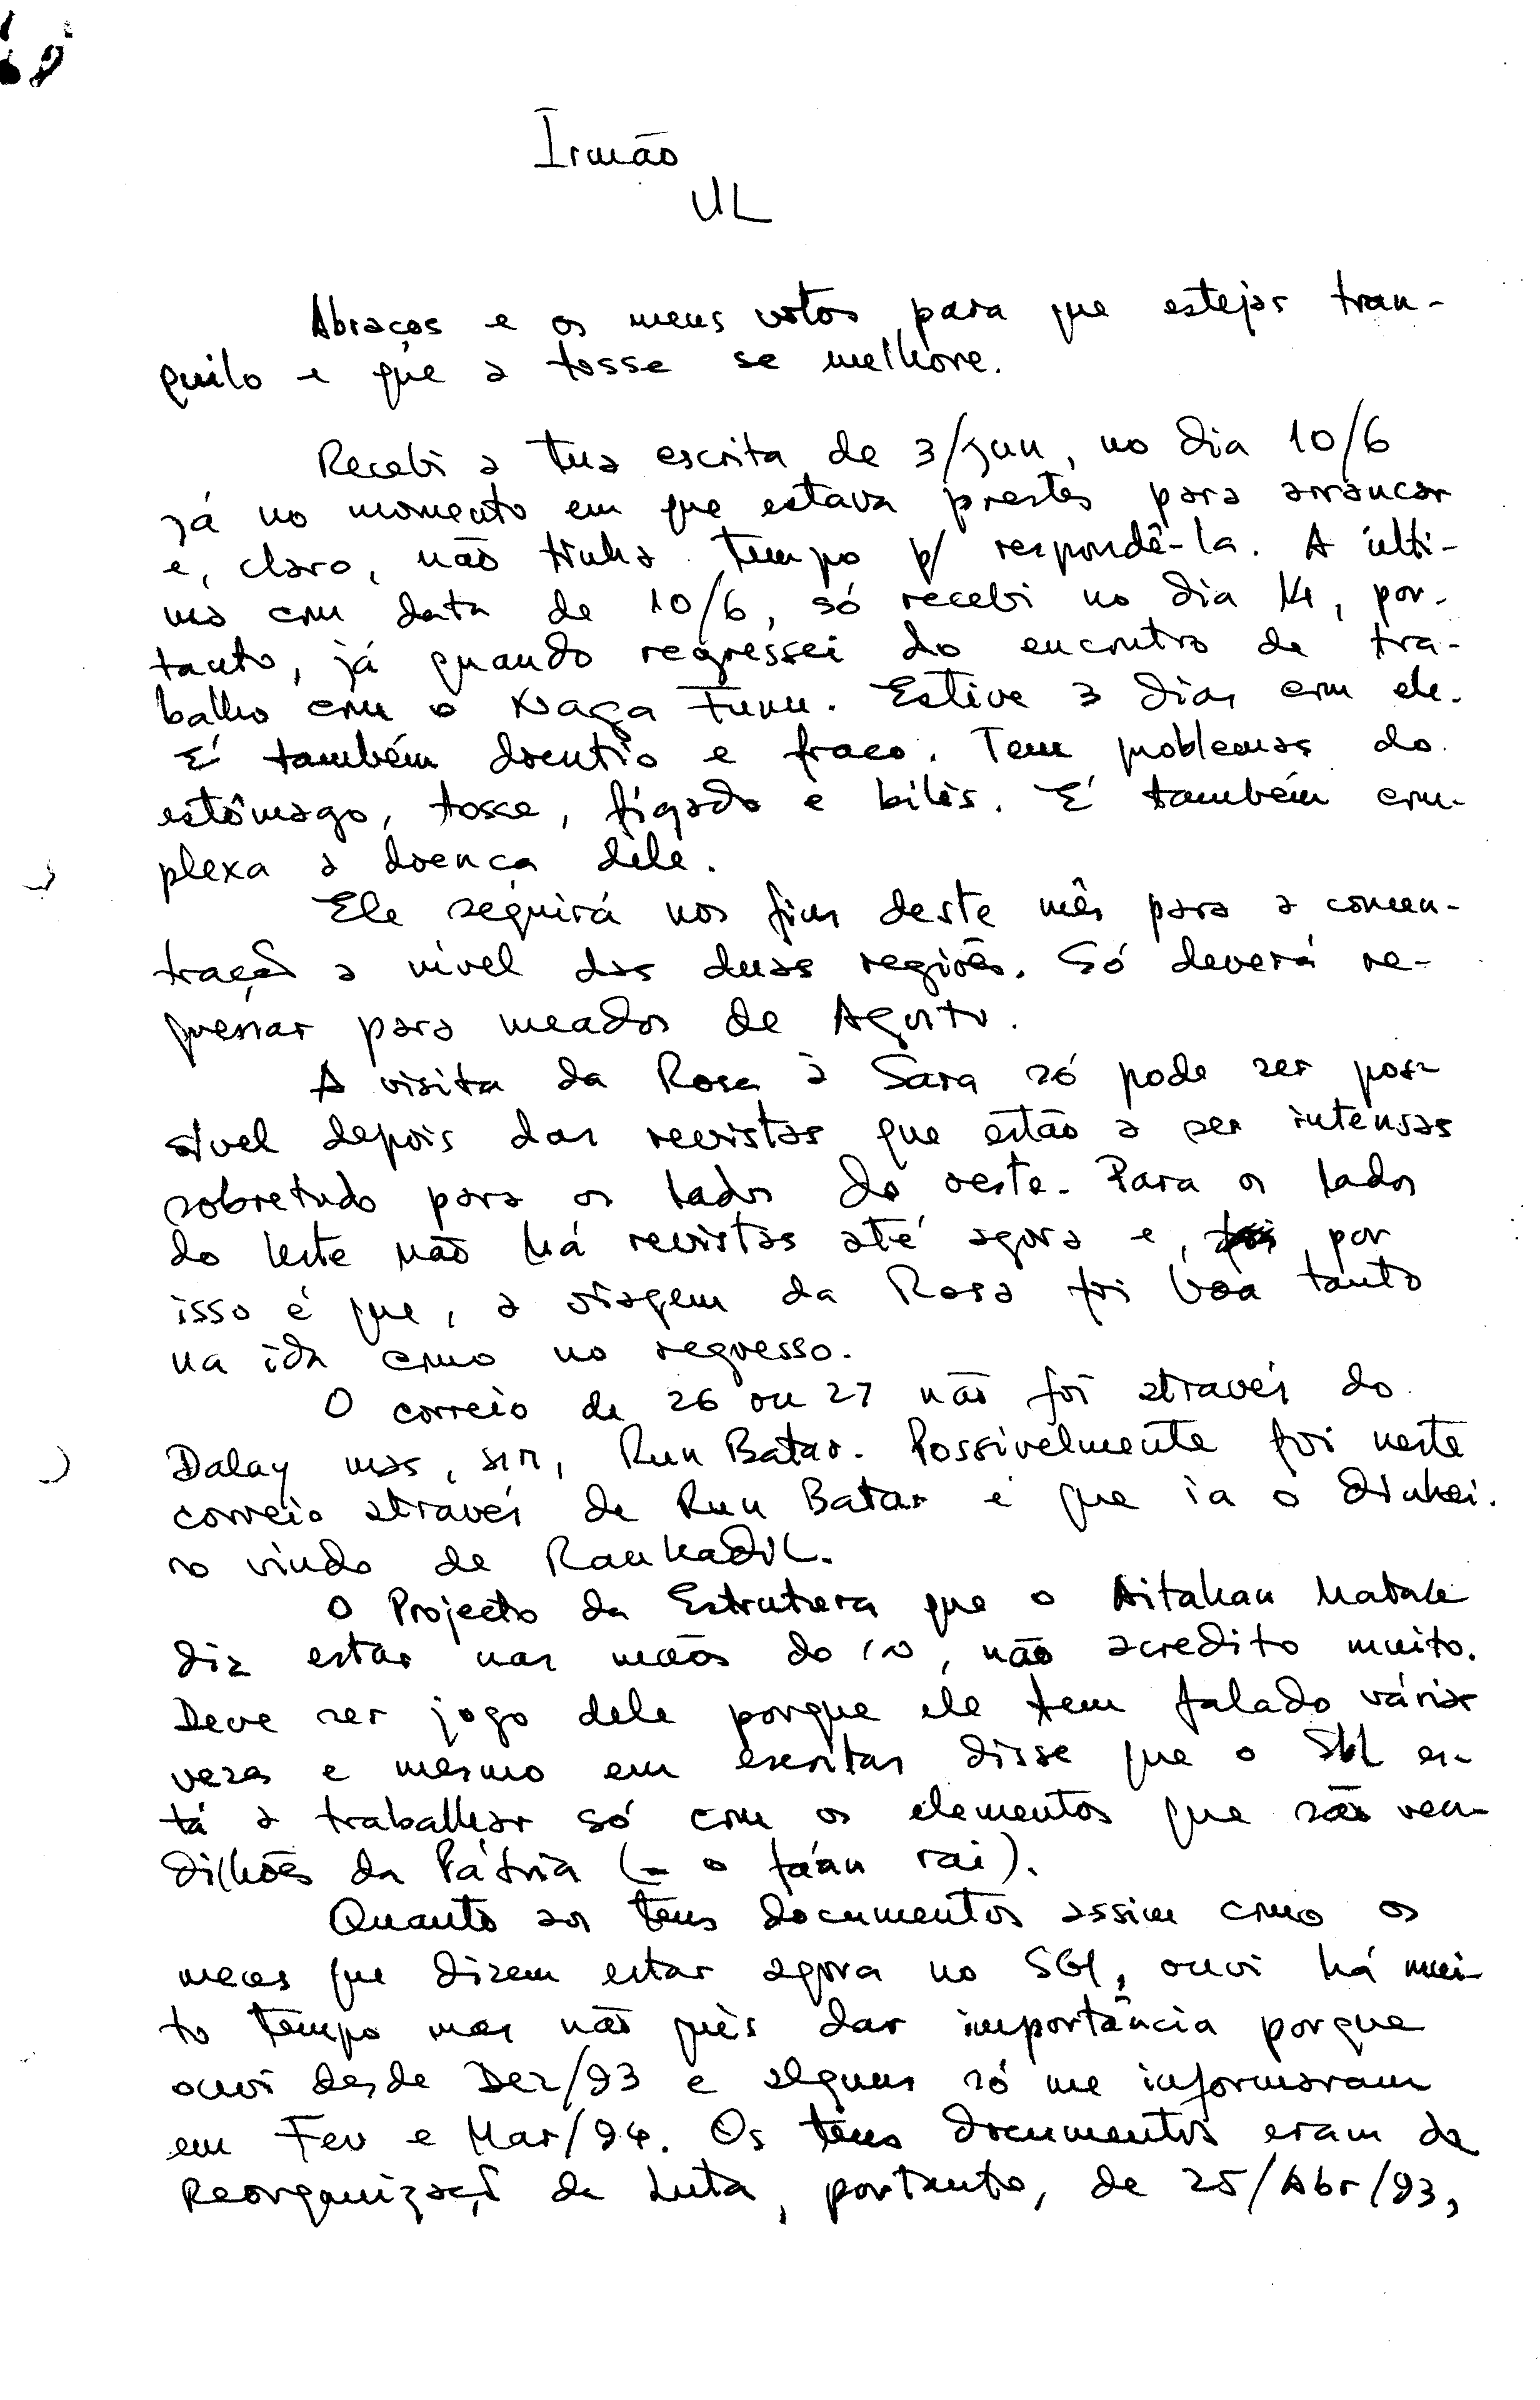 Irmão
UL
Abraços e os meus votos para que estejas tran-
quilo e que a tosse se melhore.
Recebi a tua escrita de 3/Jun, no dia 10/6
já no momento em que estava prestes para arrancar
e, claro, não tinha tempo p/ respondê-la. A últi-
ma com data de 10/6, só recebi no dia 14, por-
tanto, já quando regressei do encontro de tra-
balho com o Naga Funu. Estive 3 dias com ele.
É também doentio e fraco. Tem problemas do
estômago, tosse, fígado e bilis. É também com-
plexa a doença dele.
Ele seguirá nos fins deste mês para a concen-
tração a nível das duas regiões. Só deverá re-
gressar para meados de Agosto.
A visita da Rosa à Sara só pode ser pos-
sível depois das revistas que estão a ser intensas
sobretudo para os lados do oeste. Para os lados
do leste não há revistas até agora e, por
isso é que, a viagem da Rosa foi boa tanto
na ida como no regresso.
O correio de 26 ou 27 não foi através do
Dalay mas, sim, Run Batar. Possivelmente foi neste
correio através de Run Batar é que ia o dinhei-
ro vindo de RanKadiL.
O Projecto da Estrutura que o Aitahan Matak
diz estar nas mãos do, não acredito muito.
Deve ser jogo dele porque ele tem falado várias
vezes e mesmo em escritas disse que o es-
tá a trabalhar só com os elementos que são ven-
dilhões da Pátria (= o fa'an rai).
Quanto aos teus documentos assim como os
meus que dizem estar agora no SGI, ouvi há mui-
to tempo mas não quis dar importância porque
ouvi desde Dez/93 e alguns só me informaram
em Fev e Mar/94. Os teus documentos eram da
Reorganização da Luta, portanto, de 25/Abr/93,